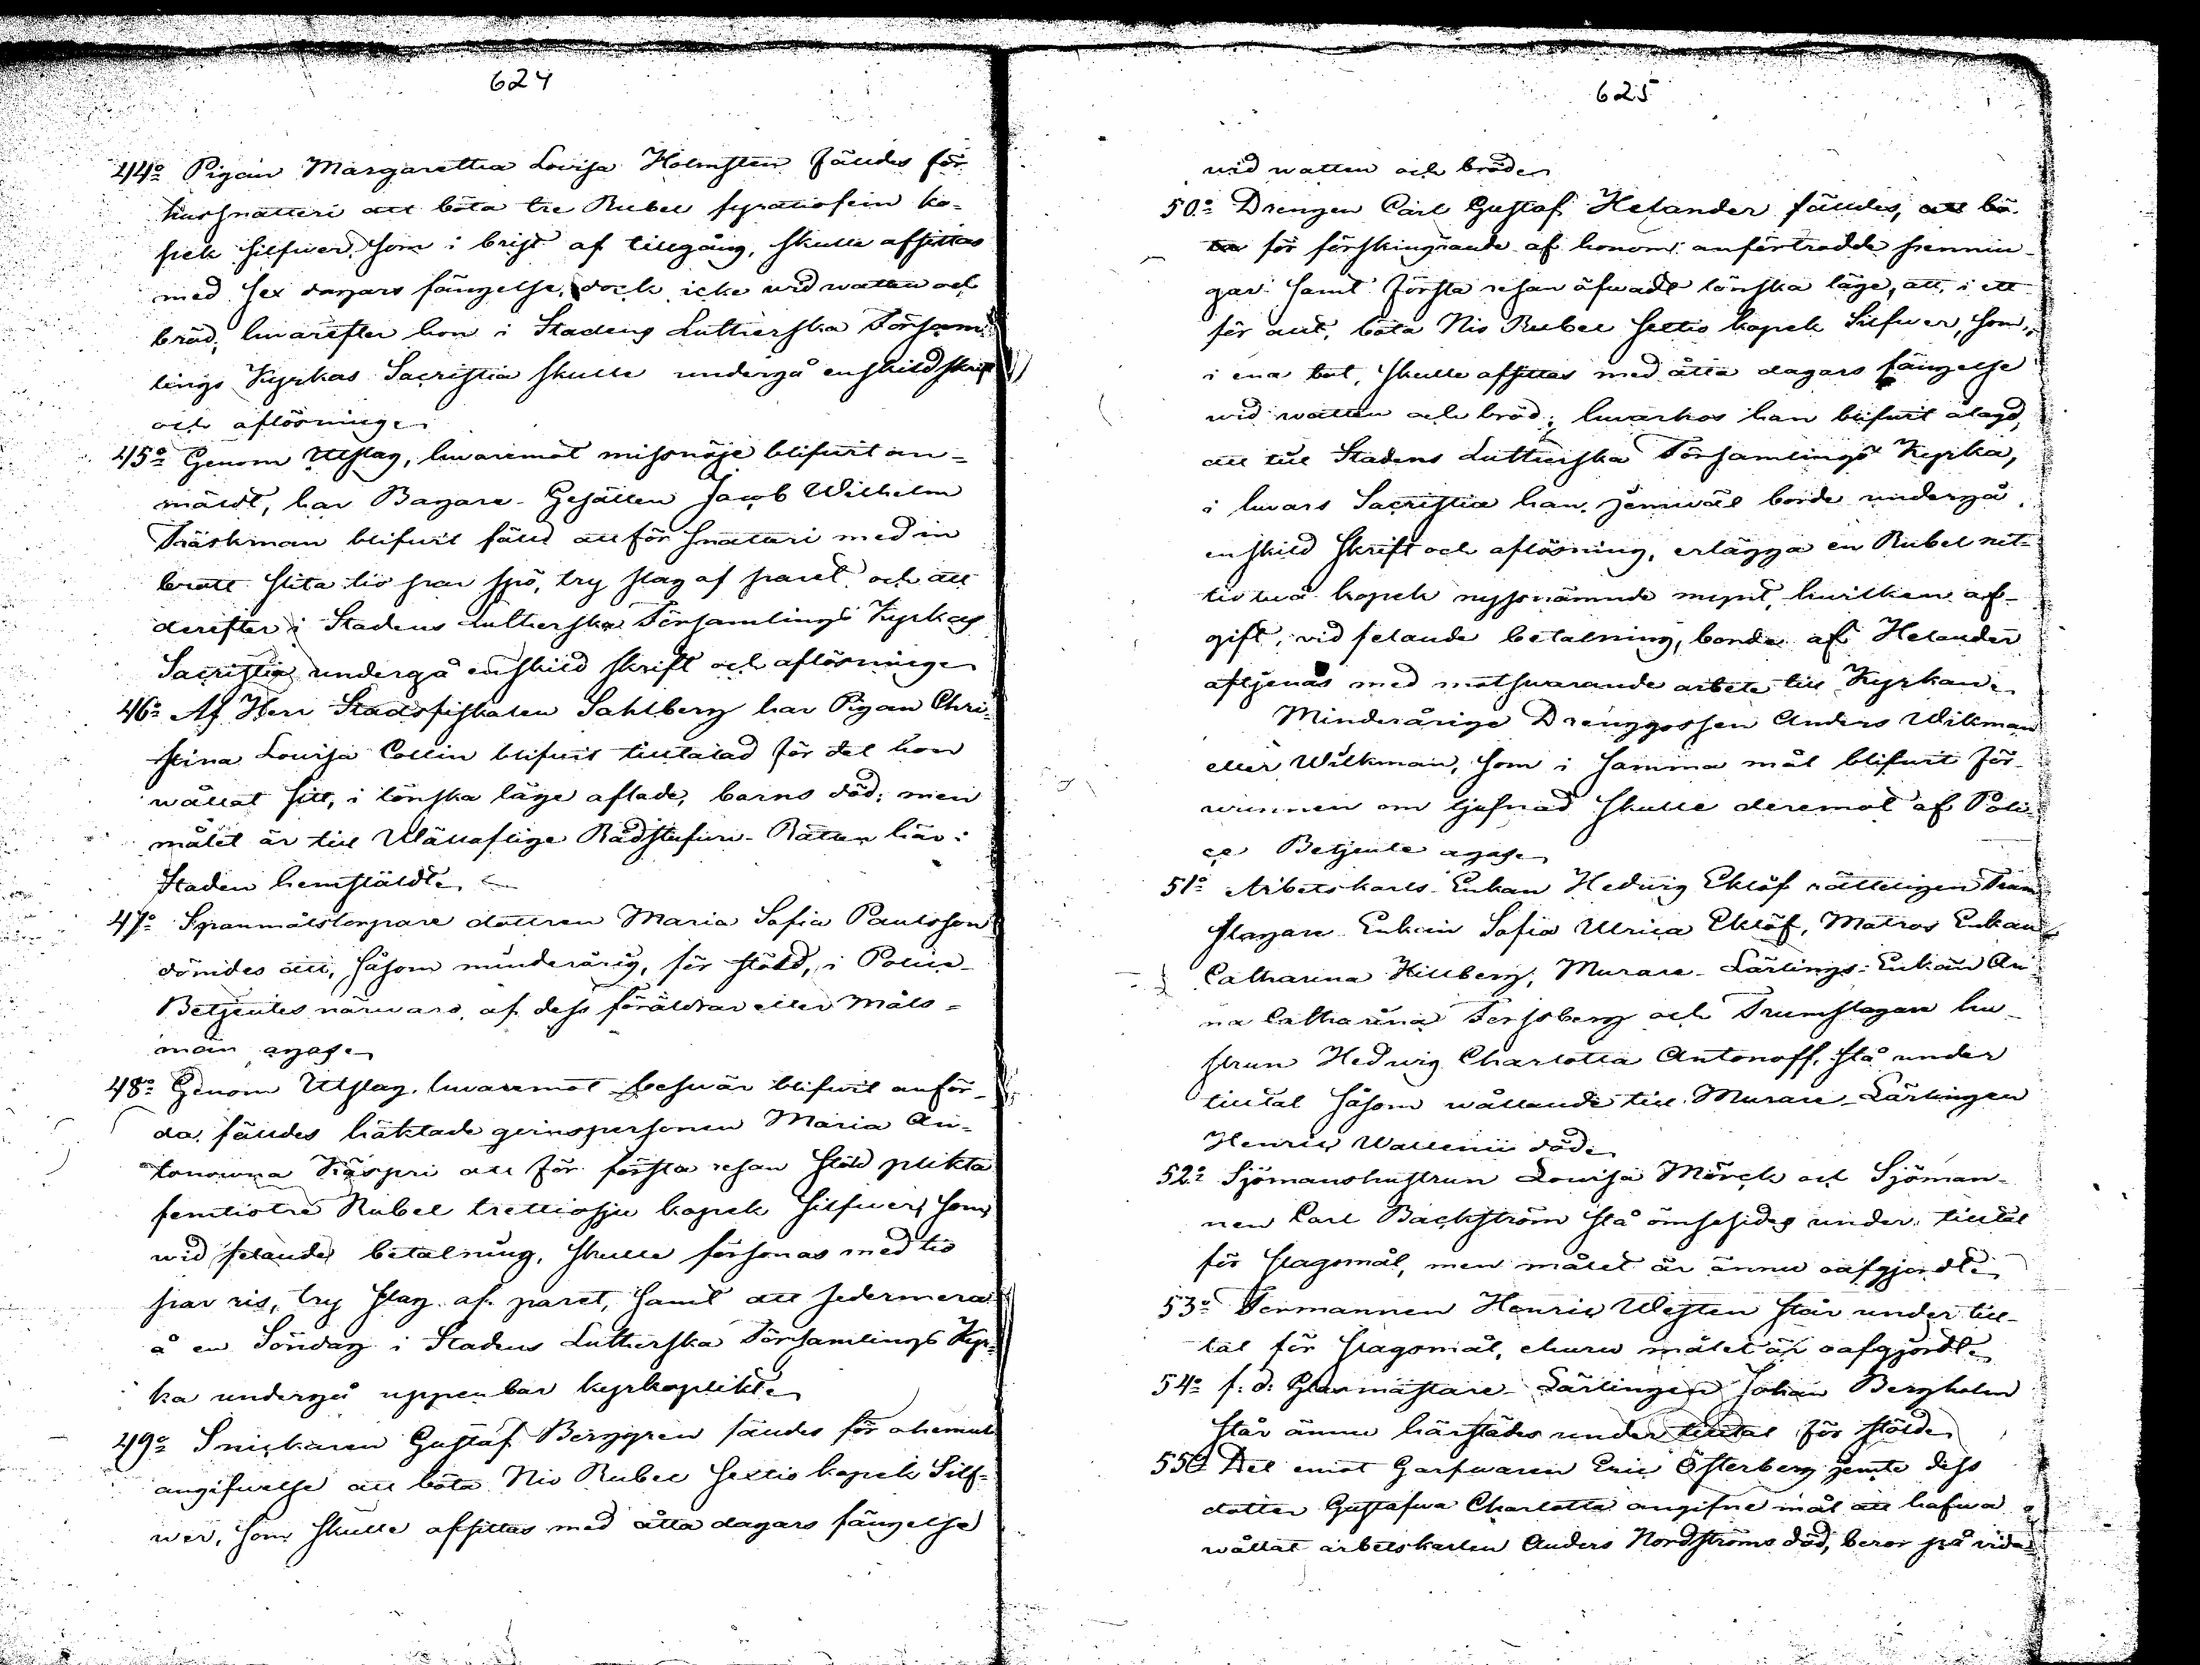 624
44º Pigan Margaretha Lovisa Holmsten fäldes för
hussnatteri att böta tre Rubel fyratiofem ko-
pek Silfwer, som i brist af tillgång, skulle afsittas
med sex dagars fängelse, dock icke wid watten och
bröd; hwarefter hon i Stadens Lutherska Församl-
lings Kyrkas Sacristia skulle undergå enskild skrift
och aflösning.
45º Genom Utslag, hwaremot missnöje blifwit an-
mäldt, har Bagare-Gesällen Jacob Wilhelm
Träskman blifwit fäld att för snatteri med in
brott slita tio par spö, try slag af paret och att
derefter i Stadens Lutherska Församlings Kyrkas
Sacristia undergå enskild skrift och aflösning.
46º Af Herr Stadsfiskalen Sahlberg har Pigan Chri-
stina Lovisa Collin blifwit tilltalad för det hon
wållat sitt, i lönska läge aflade, barns död; men
målet är till Wällofliga Rådstufwu-Rätten här i
Staden hemstäldt.
47º Spanmålstorgare dottren Maria Sofia Paulsson
dömdes att, såsom minderårig, för stöld, i Police-
Betjentes närwaro, af dess föräldrar eller Måls-
man agas.
48º Genom Utslag, hwaremot beswär blifwit anför-
da, fäldes häktade qwinspersonen Maria An-
tonowna Käspri att för första resan stöld plikta
femtiotre Rubel trettiosju kopek Silfwer, som
wid felande betalning, skulle försonas med tio
par ris, try slag af paret, samt att sedermera
å en Söndag i Stadens Lutherska Församlings Kyr-
ka undergå uppenbar kyrkoplikt.
49º Snickaren Gustaf Berggren fäldes för ohemul
angifwelse att böta Nio Rubel sextio kopek Silf-
wer, som skulle afsittas med åtta dagars fängelse
625
wid watten och bröd.
50º Drengen Carl Gustaf Helander fäldes, att bö-
ta för förskingrande af honom anförtrodde pennin-
gar samt första resan öfwadt lönska läge, att, i ett
för allt, böta Nio Rubel sextio kopek Silfwer, som,
i ena bot, skulle afsittas med åtta dagars fängelse
wid watten och bröd; hwarhos han blifwit ålagd,
att till Stadens Lutherska Församlings Kyrka,
i hwars Sacristia han jemwäl borde undergå
enskild skrift och aflösning, erlägga en Rubel nit-
tiotwå kopek nyssnämnde mynt, hwilken af-
gift, vid felande betalning, borde af Helander
aftjenas med motswarande arbete till Kyrkan.
Minderårige Drenggossen Anders Wikman
eller Wilkman, som i samma mål blifwit för-
wunnen om tjufnad skulle deremot af Poli-
ce Betjente agas.
51º Arbetskarls Enkan Hedwig Eklöf rätteligen Trum
slagare Enkan Sofia Ulrica Eklöf, Matros Enkan
Catharina Hillberg, Murare-Lärlings-Enkan An-
na Catharina Forssberg och Trumslagare hu-
strun Hedwig Charlotta Antonoff, stå under
tilltal såsom wållande till Murare-Lärlingen
Henric Wallenii död.
52º Sjömanshustrun Lovisa Mörck och Sjöman-
nen Carl Backström stå ömsesides under tilltal
för slagsmål, men målet är ännu oafgjordt.
53º Formannen Henric Westen står under till-
tal för slagsmål, ehuru målet är oafgjordt.
54º f. d. Glasmästare-Lärlingen Johan Bergholm
står ännu härstädes under tilltal för stöld.
55º Det emot Garfwaren Eric Österberg jemte dess
dotter Gustafwa Charlotta angifne mål att hafwa
wållat arbetskarlen Anders Nordströms död, beror på vida-